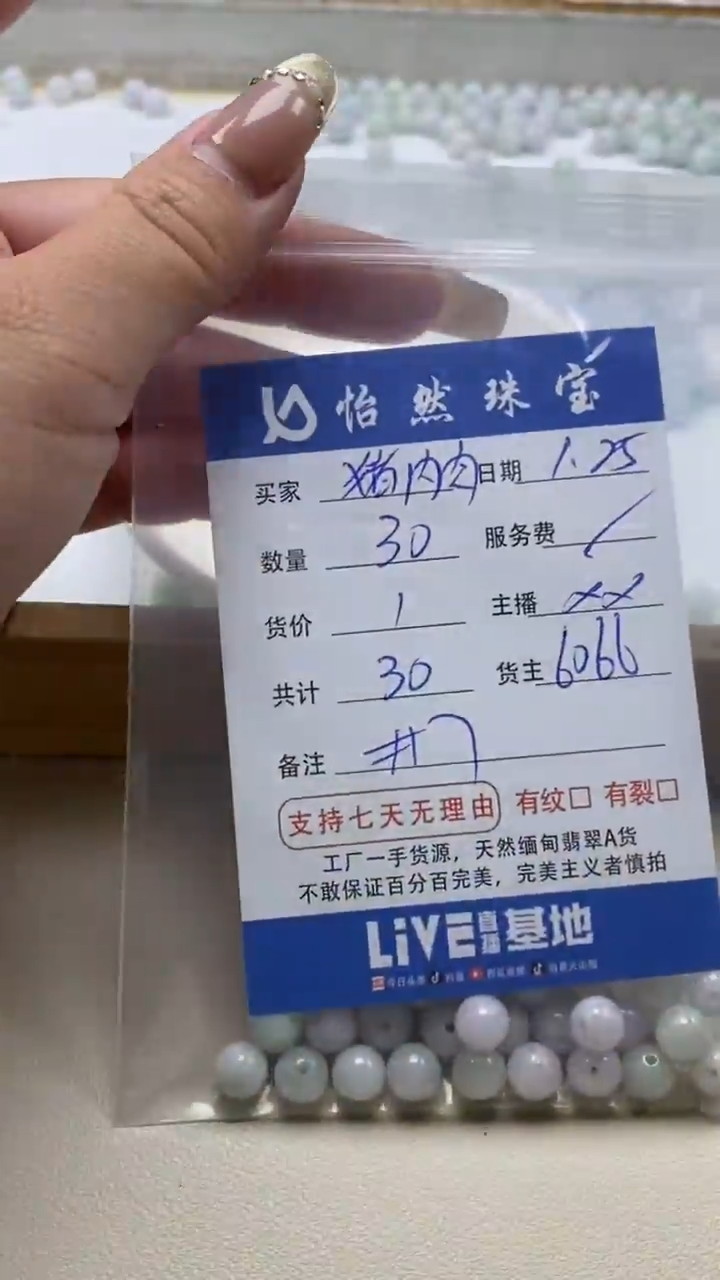 怡然珠宝
买家 猪肉肉 日期 1.25
数量 30 服务费 /
货价 1 主播 xx
共计 30 货主 6066
备注
支持七天无理由 有纹□ 有裂□
工厂一手货源，天然缅甸翡翠A货
不敢保证百分百完美，完美主义者慎拍
LiVE直播基地
今日头条 抖音 西瓜视频 抖音火山版